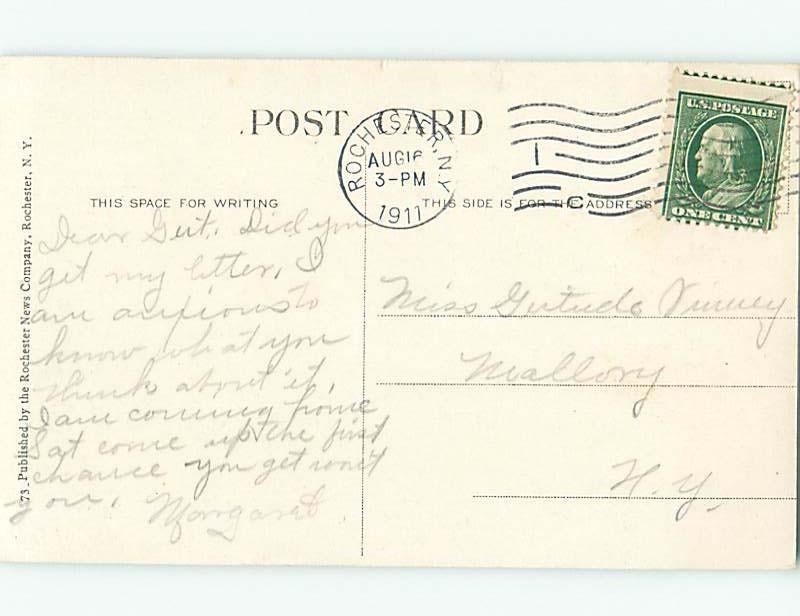 POST CARD
ROCHESTER, N.Y.
AUG 16
3-PM
1911
1
C
U.S. POSTAGE
ONE CENT
THIS SPACE FOR WRITING
THIS SIDE IS FOR THE ADDRESS
73 Published by the Rochester News Company, Rochester, N. Y.
Dear Gert. Did you
get my letter, I
am anxious to
know what you
think about it.
I am coming home
Sat come up the first
chance you get won't
you.
Margaret
Miss Gertrude Vinney
Mallory
N.Y.